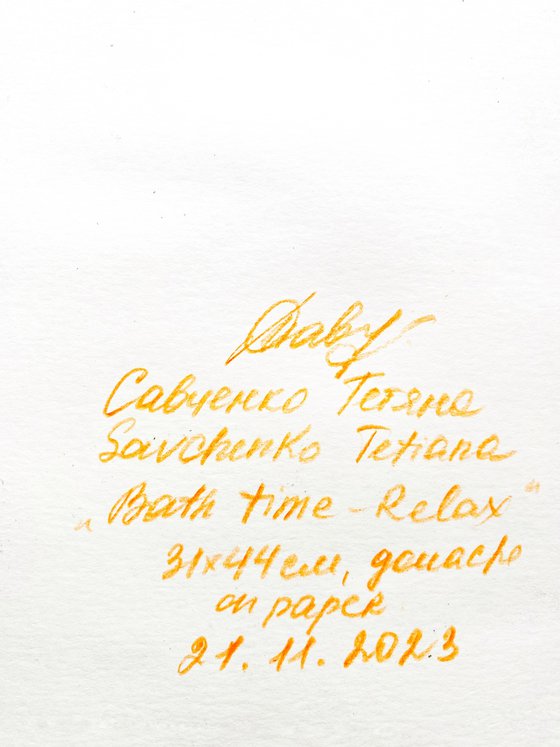 Савченко Тетяна
Savchenko Tetiana
„Bath time - Relax“
31x44см, gouache
on paper
21. 11. 2023